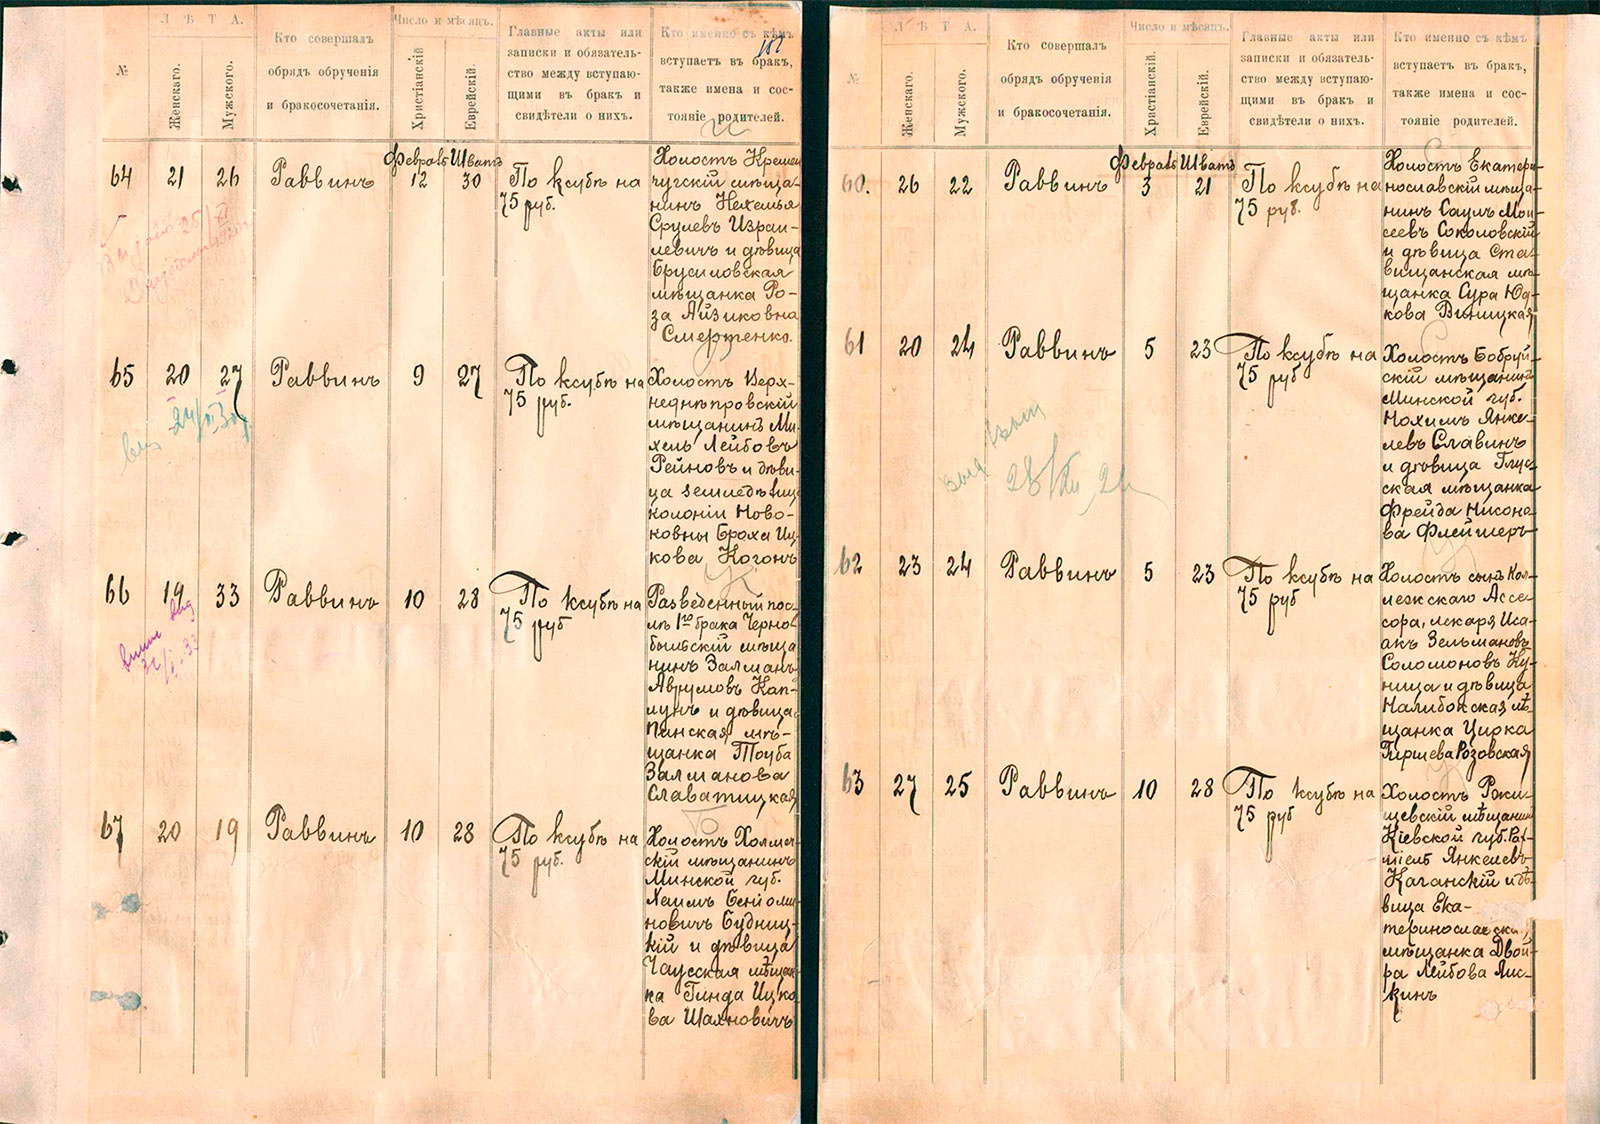 Л Ѣ Т А.
Число и мѣсяцъ.
№
Женскаго.
Мужского.
Кто совершалъ
обрядъ обрученія
и бракосочетанія.
Христіанскій
Еврейскій.
Главные акты или
записки и обязатель-
ство между вступаю-
щими въ бракъ и
свидѣтели о нихъ.
Кто именно съ кѣмъ
вступаетъ въ бракъ,
также имена и сос-
тояніе родителей.
64 21 26 Раввинъ
Февраль Шватъ
12 30
По ксубѣ на
75 руб.
Холостъ Кремен
чугскій мѣща-
нинъ Нехемья
Срулевъ Израи-
левичъ и дѣвица
Брусиловская
мѣщанка Ро-
за Айзиковна
Смертенко.
65 20 27 Раввинъ 9 27
По ксубѣ на
75 руб.
Холостъ Верх-
неднѣпровскій
мѣщанинъ Ми-
хель Лейбовъ
Рейновъ и дѣви-
ца землед
колоніи Ново-
ковны Броха Иц-
кова Когонъ
66 19 33 Раввинъ 10 28
По ксубѣ на
75 руб
Разведенный пос-
лѣ 1го брака Черно-
быльскій мѣща
нинъ Залманъ
Аврумовъ Кап-
лунъ и дѣвица
Пинская мѣ-
щанка Тоуба
Залманова
Славатицкая
67 20 19 Раввинъ 10 28
По ксубѣ на
75 руб.
Холостъ Холмеч-
скій мѣщанинъ
Минской губ.
Хаимъ Беніоми-
новичъ Будниц-
кій и дѣвица
Чаусская мѣщан-
ка Гинда Ицко-
ва Шахновичъ
Л Ѣ Т А.
Число и мѣсяцъ.
№
Женскаго.
Мужского.
Кто совершалъ
обрядъ обрученія
и бракосочетанія.
Христіанскій.
Еврейскій.
Главные акты или
записки и обязатель-
ство между вступаю-
щими въ бракъ и
свидѣтели о нихъ.
Кто именно съ кѣмъ
вступаетъ въ бракъ,
также имена и сос-
тояніе родителей.
60. 26 22 Раввинъ
Февраль Шватъ
3 21
По ксубѣ на
75 руб.
Холостъ Екатери-
нославскій мѣща-
нинъ Саулъ Мои-
сеевъ Соколовскій
и дѣвица Ста-
вищанская мѣ-
щанка Сура Юд-
кова Виницкая
61 20 24 Раввинъ 5 23
По ксубѣ на
75 руб
Холостъ Бобруй-
скій мѣщанинъ
Минской губ.
Нохимъ Янке-
левъ Славинъ
и дѣвица Глус-
ская мѣщанка
Фрейда Нисоно-
ва Флейшеръ
28/XII 21
62 23 24 Раввинъ 5 23
По ксубѣ на
75 руб
Холостъ сынъ Кол-
лежскаго Ассе-
сора, лекаря Иса-
акъ Зельмановъ
Соломоновъ Ку-
ница и дѣвица
Налибокская мѣ-
щанка Цирка
Гиршева Розовская
63 27 25 Раввинъ 10 28
По ксубѣ на
75 руб
Холостъ Роки-
щевскій мѣщанинъ
Кіевской губ. Рах-
міель Янкелевъ
Каганскій и дѣ-
вица Ека-
теринославска
мѣщанка Двой-
ра Лейбова Яис-
кинъ